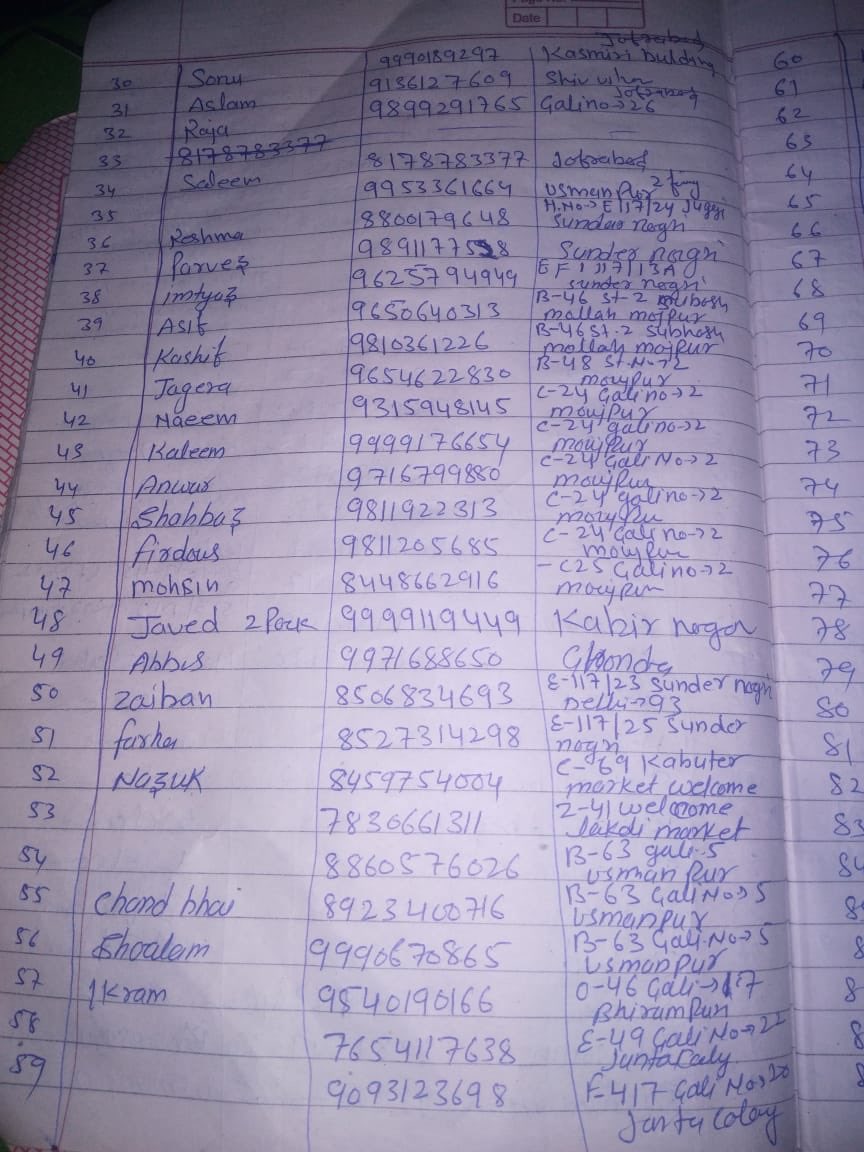 Date
Jofrabad
9990189297 Kasmiri bulding 60
30 Sonu 9136127609 Shiv vihar 61
Jofrabad
31 Aslam 9899291765 Gali no→26 62
32 Raja
33 8178783377 63
Saleem 8178783377 Jofrabad 64
34 9953361664 Usmanpur 65
35 H.No→E 117/24 Juggi
8800179648 Sundar nagri 66
36 Reshma 98911775 8 Sunder nagri 67
37 Parvez 9625794949 EF 1 117/13A
sunder nagri 68
38 imtyaz 9650640313 B-46 St-2
mollah mojpur 69
39 Asif 9810361226 B-46 St.2 Subhash
mollah mojpur 70
40 Kashif 9654622830 B-48 St.No→2
moujpur 71
41 Jagera C-24 Gali no→2
42 Naeem 9315948145 moujpur 72
C-24 gali no→2
43 Kaleem 9999176654 moujpur 73
C-24 Gali No→2
44 Anwar 9716799880 moujpur 74
C-24 gali no→2
45 Shahbaz 9811922313 moujpu 75
C-24 Gali no→2
46 firdous 9811205685 moujpur 76
C25 Gali no→2
47 mohsin 8448662916 moujpur 77
48 Javed 9999119449 Kabir nagar 78
49 Abbas 9971688650 Ghonda 79
50 Zaiban 8506834693 E-117/23 Sunder nagri
Delhi→93 80
51 farha 8527314298 E-117/25 Sunder
nagri 81
52 Nazuk 8459754004 C-69 Kabuter
market welcome 82
53 7830661311 Z-41 welcome
lakdi market 83
54 8860576026 B-63 gali-5
usmanpur 84
55 Chand bhai 8923400716 B-63 Gali No→5
Usmanpur 8
56 Shoalam 9990670865 B-63 Gali.No→5
Usmanpur 8
57 Ikram 9540190166 O-46 Gali→17
8
58 7654117638 E-49 Gali No→22
8
59 9093123698 F-417 Gali No→20
Janta Colony 8